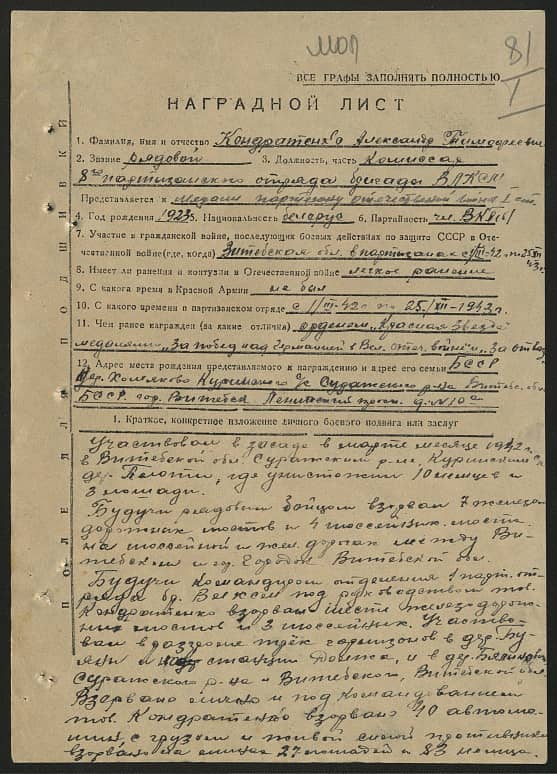 МОП
81
I
ВСЕ ГРАФЫ ЗАПОЛНЯТЬ ПОЛНОСТЬЮ
НАГРАДНОЙ ЛИСТ
1. Фамилия, имя и отчество Кондратенко Александр Тимофеевич
2. Звание рядовой 3. Должность, часть Комиссар
8го партизанского отряда бригада ВЛКСМ
Представляется к медали партизану отечественной войны I ст.
4. Год рождения 1923 5. Национальность белорус 6. Партийность чл. ВКП(б)
7. Участие в гражданской войне, последующих боевых действиях по защите СССР и Оте-
чественной войне (где, когда) Витебская обл. в партизанах с III-42 г. по 25 XII 43 г.
8. Имеет ли ранения и контузии в Отечественной войне легкое ранение
9. С какого времени в Красной Армии не был
10. С какого времени в партизанском отряде с III-42 г. по 25/XII-1943 г.
11. Чем ранее награжден (за какие отличия) орденом „Красная Звезда"
медалями „За победу над Германией в Вел. отеч. войне", „За отвагу"
12. Адрес места рождения представляемого к награждению и адрес его семьи БССР
дер. Хомяково Куринского с/с Суражского р-на Витебск. обл.
БССР. гор. Витебск Ленинский д. № 10а
1. Краткое, конкретное изложение личного боевого подвига или заслуг
Участвовал в засаде в марте месяце 1942 г.
в Витебской обл. Суражским р-не, Куринский с/с
дер. где уничтожили 10 немцев и
3 лошади.
Будучи рядовым бойцом взорвал 7 железно
дорожных мостов и 4 шоссейных моста
на шоссейной и жел. дорогах между Ви-
тебском и гор. Городок Витебской обл.
Будучи командиром отделения 1 парт. от-
ряда бр. под руководством тов.
Кондратенко взорвал шесть железнодорож-
ных мостов и 3 шоссейных. Участво-
вал в разгроме трёх гарнизонов в дер. Бу-
яни и станции и в дер.
Суражского р-на и Витебского, Витебской обл.
Взорвано лично и под командованием
тов. Кондратенко взорвано 10 автома-
шин с грузом и живой силой противника
взорвано на минах 27 лошадей и 83 немца.
ПОЛЕ ДЛЯ ПОДШИВКИ